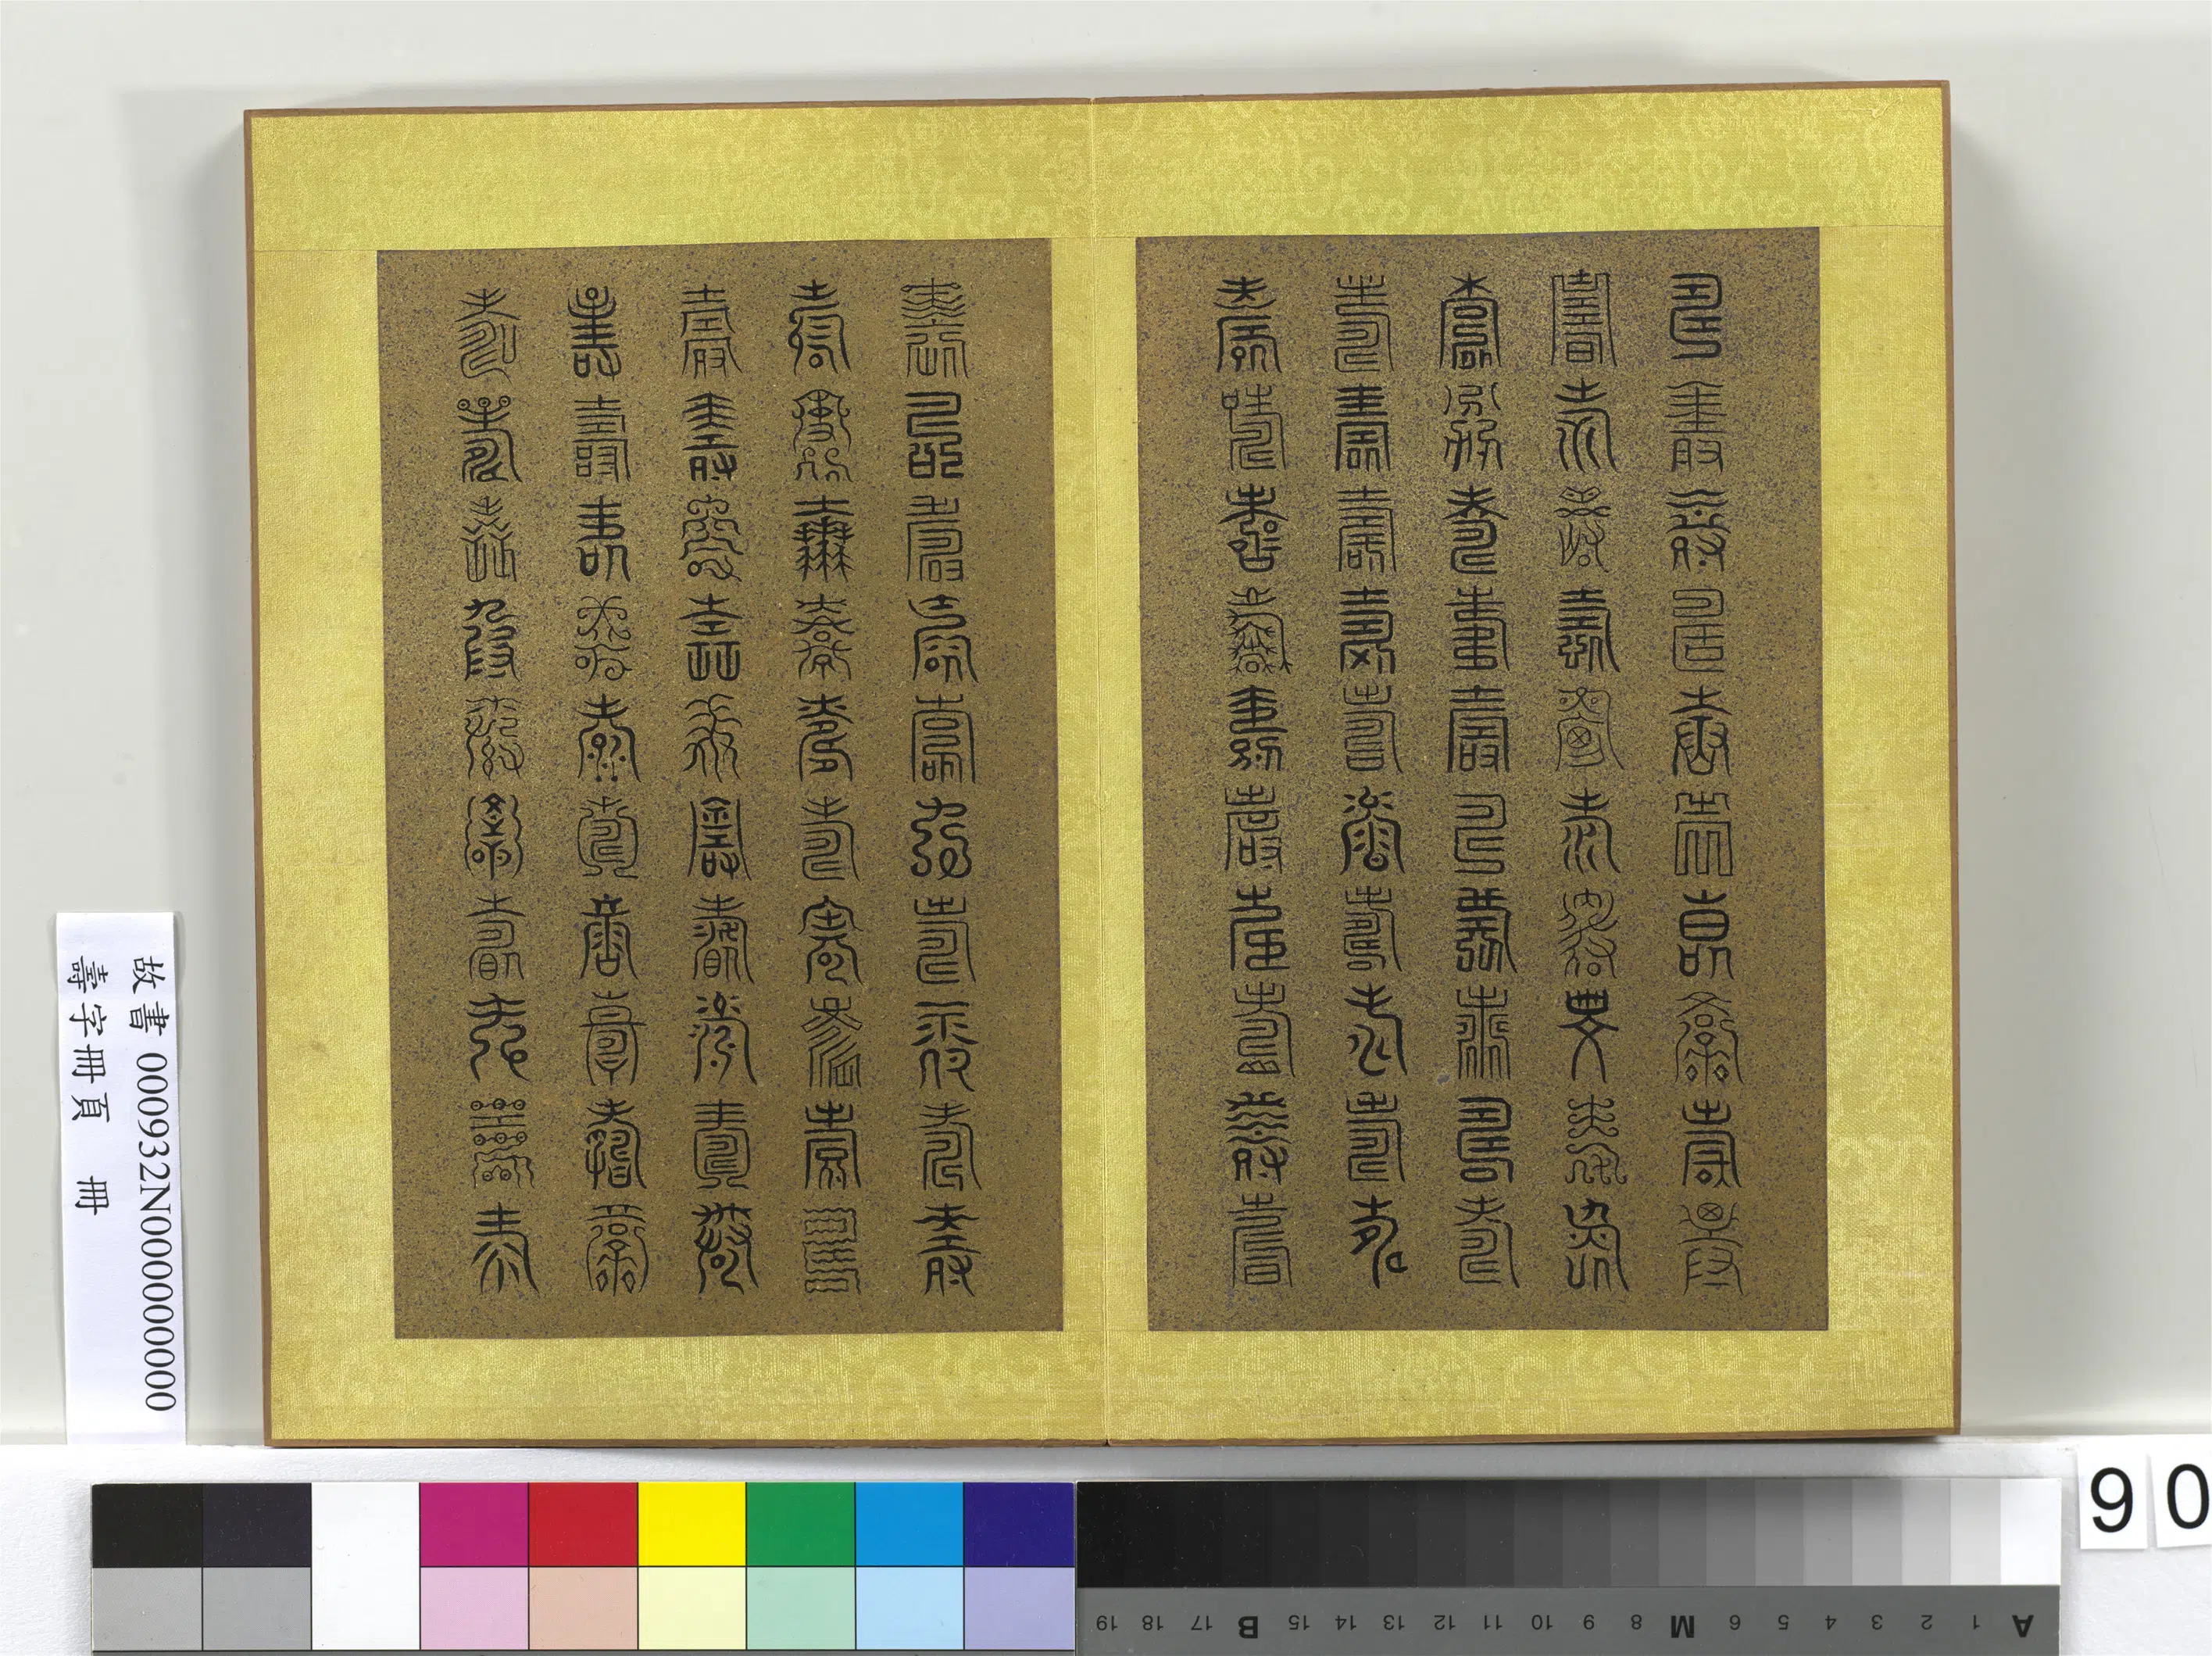 壽壽壽壽壽壽壽壽壽壽
壽壽壽壽壽壽壽壽壽壽
壽壽壽壽壽壽壽壽壽壽
壽壽壽壽壽壽壽壽壽壽
壽壽壽壽壽壽壽壽壽壽
壽壽壽壽壽壽壽壽壽壽
壽壽壽壽壽壽壽壽壽壽
壽壽壽壽壽壽壽壽壽壽
壽壽壽壽壽壽壽壽壽壽
壽壽壽壽壽壽壽壽壽壽
故書 000932N000000000
壽字冊頁 冊
90
A 1 2 3 4 5 6 M 8 9 10 11 12 13 14 15 B 17 18 19